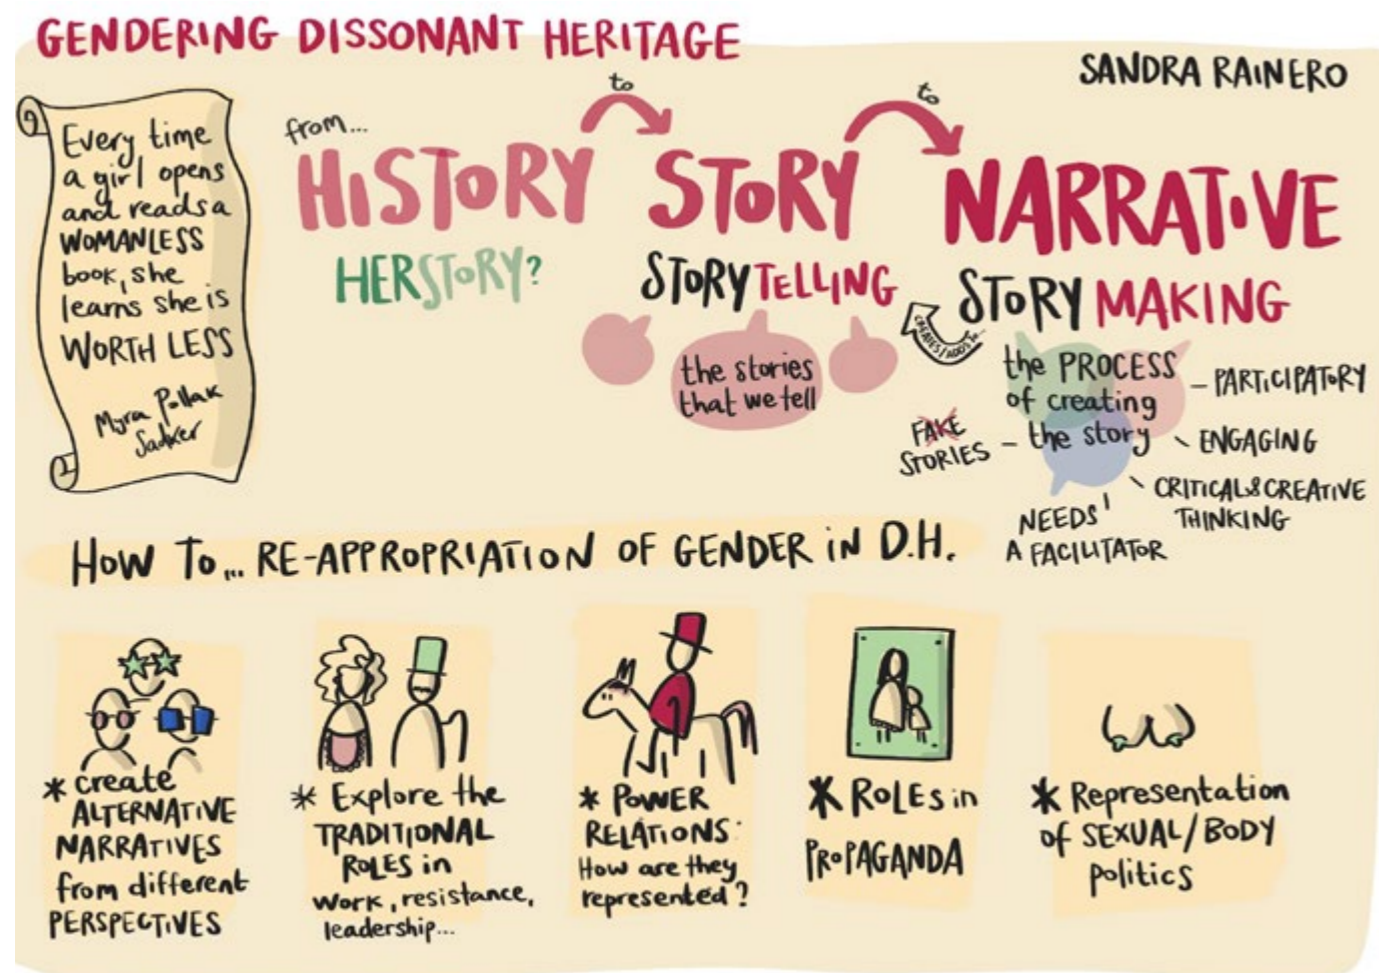 GENDERING DISSONANT HERITAGE
SANDRA RAINERO
Every time
a girl opens
and reads a
WOMANLESS
book, she
learns she is
WORTH LESS
Myra Pollak
Sadker
from...
to
to
HISTORY
STORY
NARRATIVE
HERSTORY?
STORYTELLING
STORY MAKING
the stories
that we tell
CREATES/ADDS TO...
the PROCESS
of creating
the story
- PARTICIPATORY
ENGAGING
CRITICAL & CREATIVE
THINKING
NEEDS
A FACILITATOR
FAKE
STORIES -
HOW TO... RE-APPROPRIATION OF GENDER in D.H.
* create
ALTERNATIVE
NARRATIVES
from different
PERSPECTIVES
* Explore the
TRADITIONAL
ROLES in
work, resistance,
leadership...
* POWER
RELATIONS:
How are they
represented?
* ROLES in
PROPAGANDA
* Representation
of SEXUAL/BODY
politics